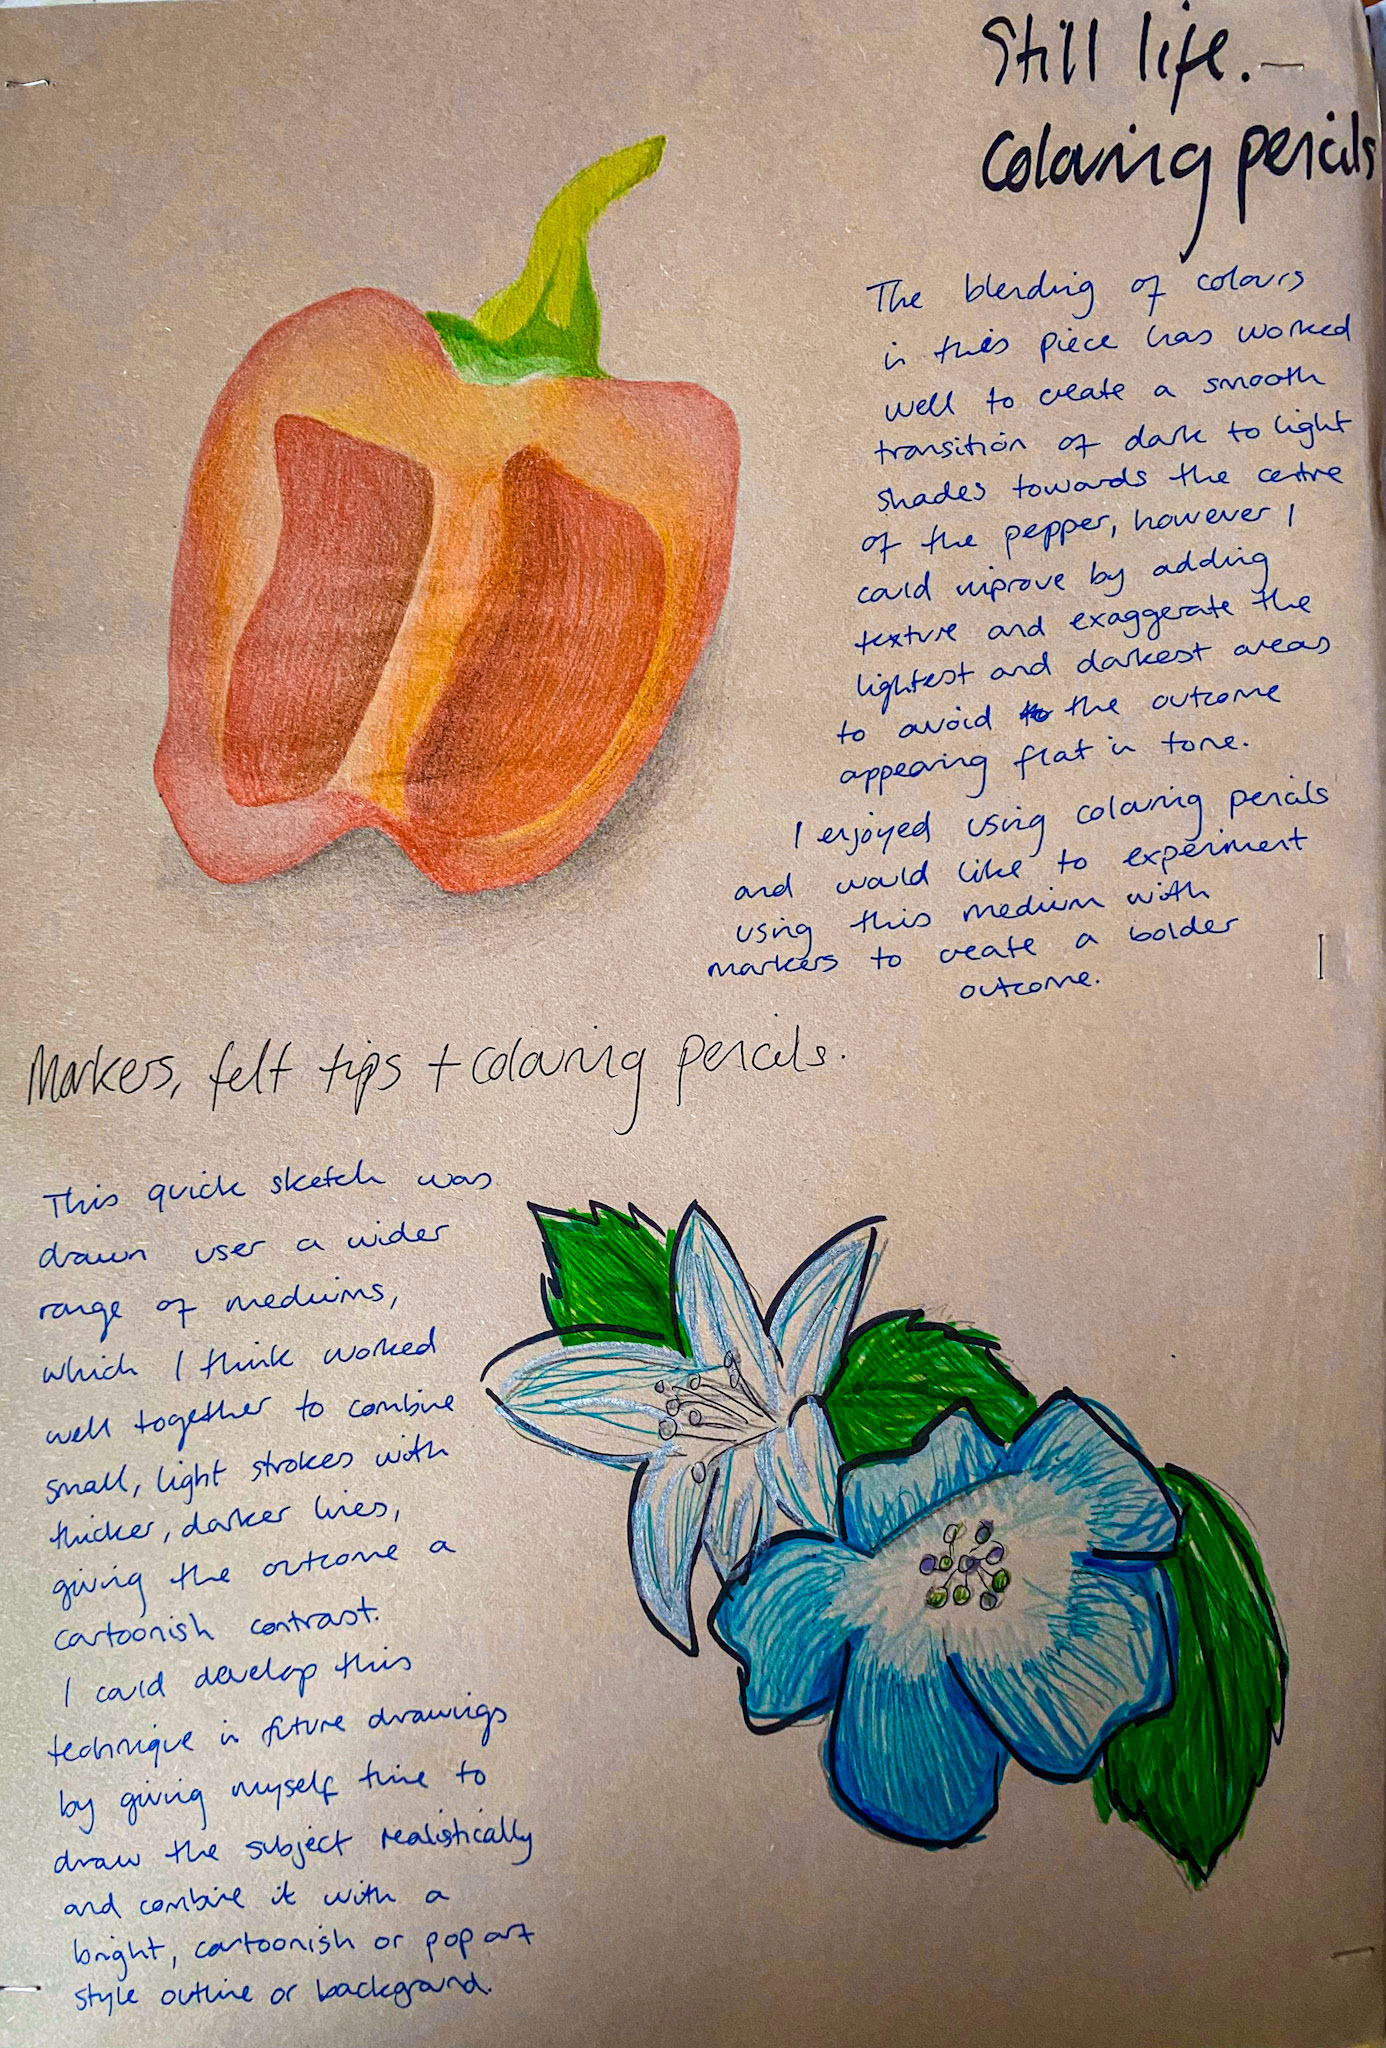 Still life.
Colouring pencils
The blending of colours
in this piece has worked
well to create a smooth
transition of dark to light
shades towards the centre
of the pepper, however I
could improve by adding
texture and exaggerate the
lightest and darkest areas
to avoid the outcome
appearing flat in tone.
I enjoyed using colouring pencils
and would like to experiment
using this medium with
markers to create a bolder
outcome.
Markers, felt tips + colouring pencils.
This quick sketch was
drawn user a wider
range of mediums,
which I think worked
well together to combine
small, light strokes with
thicker, darker lines,
giving the outcome a
cartoonish contrast.
I could develop this
technique in future drawings
by giving myself time to
draw the subject realistically
and combine it with a
bright, cartoonish or pop art
style outline or background.